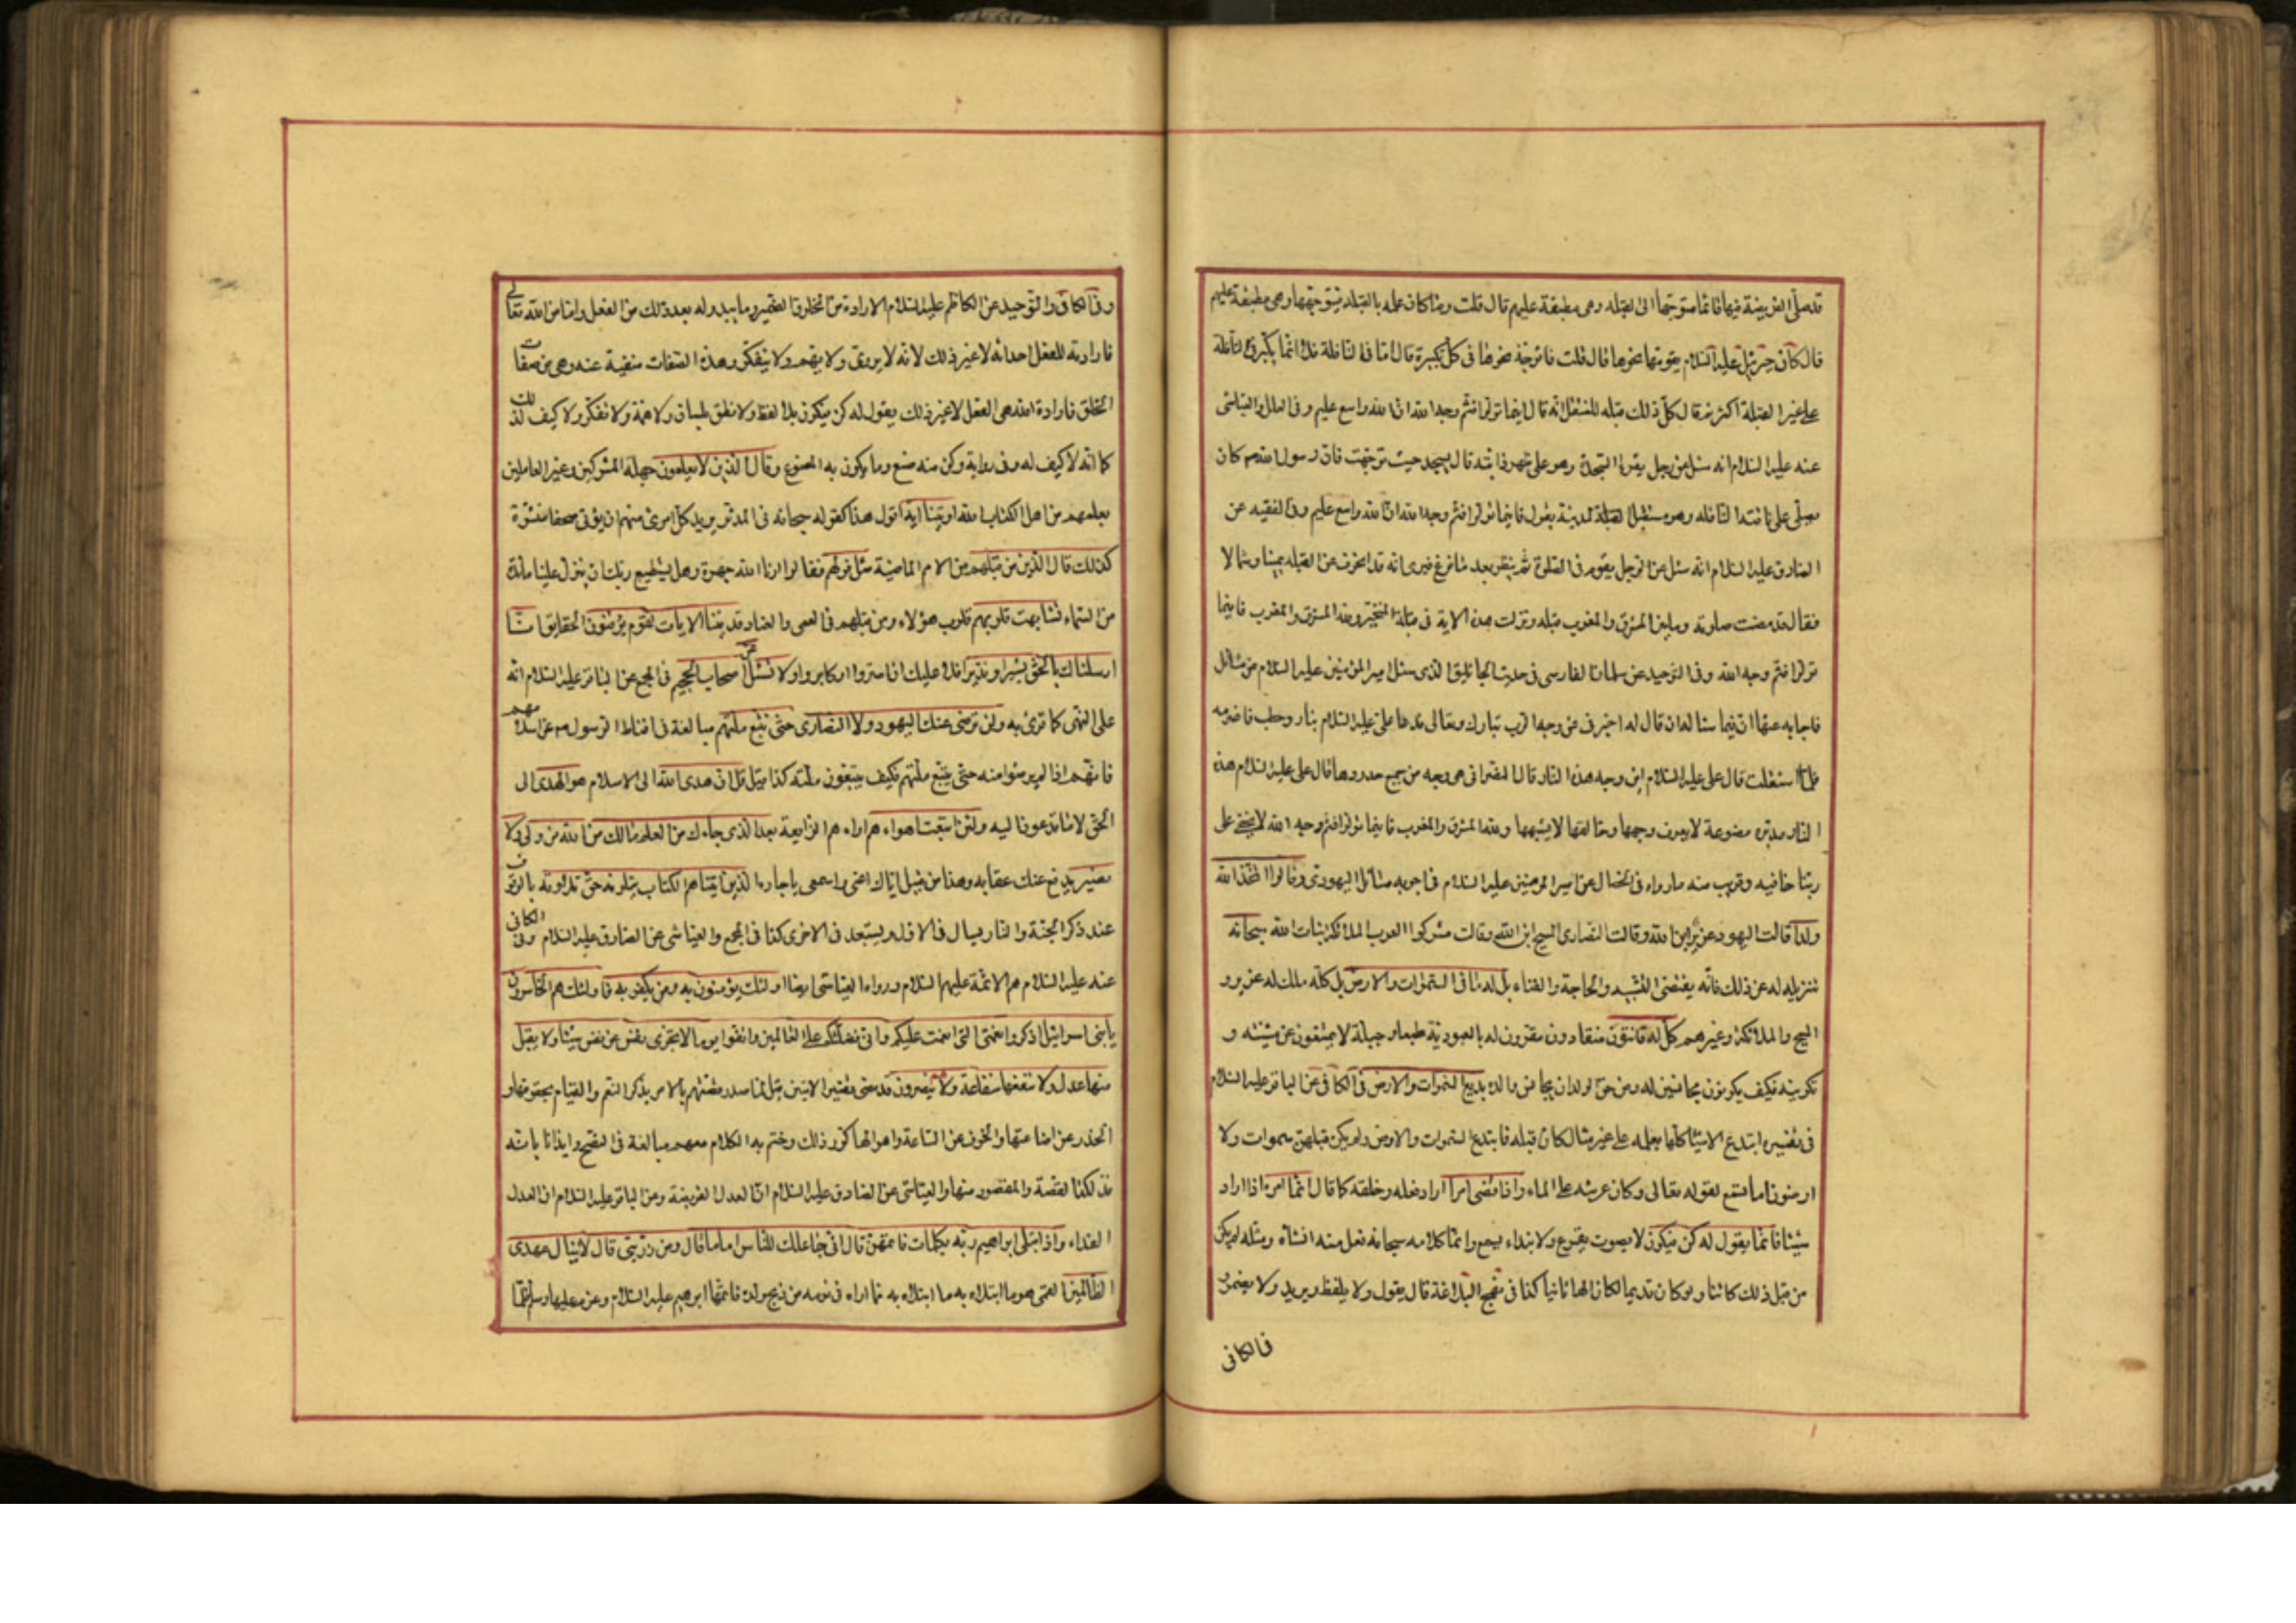 قد صلّى الفريضة فيها فانما متوجها الى القبله وهى مطبقة عليهم قال قلت وما كان علمه بالقبله فيتوجهها وهى مطبقة عليهم
قال كان جبرئيل عليه السلام يقومها نحوها قال قلت فاتوجه نحوها فى كل تكبيرة قال اما فى النافلة فلا انما يكبر فى النافلة
على غير القبلة اكثر ثم قال كل ذلك قبله للمتنفل انه قال اينما تولوا فثم وجه الله ان الله واسع عليم وفى العلل والعياشى
عنه عليه السلام انه سئل عن رجل يقرء السجدة وهو على ظهر دابته قال يسجد حيث توجهت فان رسول الله صم كان
يصلى على ناقته النافله وهو مستقبل المدينة يقول فاينما تولوا فثم وجه الله ان الله واسع عليم وفى الفقيه عن
الصادق عليه السلام انه سئل عن الرجل يقوم فى الصلوة ثم ينظر بعد ما فرغ فيرى انه قد انحرف عن القبله يمينا وشمالا
فقال قد مضت صلوته وما بين المشرق والمغرب قبله ونزلت هذه الاية فى قبلة المتحير ولله المشرق والمغرب فاينما
تولوا فثم وجه الله وفى التوحيد عن سلمان الفارسى فى حديث الجاثليق الذى سئل امير المؤمنين عليه السلام عن مسائل
فاجابه عنها ان فيما سئاله ان قال له اخبرنى عن وجه الرب تبارك وتعالى فدعا على عليه السلام بنار وحطب فاضرمه
فلما اشتعلت قال على عليه السلام اين وجه هذه النار قال النصرانى هى وجه من جميع حدودها قال على عليه السلام هذه
النار مدبرة مصنوعة لا يعرف وجهها وخالقها لا يشبهها ولله المشرق والمغرب فاينما تولوا فثم وجه الله لا يخفى على
ربنا خافيه وقريب منه ما رواه فى الخصال عن امير المومنين عليه السلام فى اجوبه مسائل اليهودى وقالوا اتخذ الله
ولدا قالت اليهود عزير ابن الله وقالت النصارى المسيح ابن الله وقالت مشركوا العرب الملائكة بنات الله سبحانه
تنزيله له عن ذلك فانه يقتضى التشبيه والحاجة والفناء بل له ما فى السموات والارض بل كله ملك له عزير و
المسيح والملائكة وغيرهم كل له قانتون منقادون مقرون له بالعبودية طبعا وجبلة لا يمتنعون عن مشيته و
تكوينه فكيف يكونون مجانسين له ومن حق الولد ان يجانس والده بديع السموات والارض فى الكافى عن الباقر عليه السلام
فى تفسيره ابتدع الاشياء كلها بعلمه على غير مثال كان قبله فابتدع السموات والارض ولم يكن قبلهن سموات ولا
ارضون اما تسمع لقوله تعالى وكان عرشه على الماء واذا قضى امرا اراد فعله وخلقه كما قال انما امره اذا اراد
شيئا فانما يقول له كن فيكون لا بصوت يقرع ولا بنداء يسمع وانما كلامه سبحانه فعل منه انشاه ومثله لم يكن
من قبل ذلك كائنا ولو كان قديما لكان الها ثانيا كذا فى نهج البلاغة قال يقول ولا يلفظ ويريد ولا يضمر
فى الكافى
وفى الكافى والتوحيد عن الكاظم عليه السلام الارادة من المخلوق الضمير وما يبدو له بعد ذلك من الفعل واما من الله تعالى
فارادته للفعل احداثه لا غير ذلك لانه لا يروى ولا يهم ولا يتفكر وهذه الصفات منفية عنه وهى من صفات
الخلق فارادة الله هى الفعل لا غير ذلك يقول له كن فيكون بلا لفظ ولا نطق بلسان ولا همة ولا تفكر ولا كيف لذلك
كما انه لا كيف له وفى رواية وكن منه صنع وما يكون به المصنوع وقال الذين لا يعلمون جهلة المشركين وغير العاملين
بعلمهم من اهل الكتاب الله او تاتينا آية اقول هذا كقوله سبحانه فى المدثر يريد كل امرئ منهم ان يؤتى صحفا منشرة
كذلك قال الذين من قبلهم من الامم الماضية مثل قولهم فقالوا ارنا الله جهرة وهل يستطيع ربك ان ينزل علينا مائدة
من السماء تشابهت قلوبهم قلوب هؤلاء ومن قبلهم فى العمى والعناد قد بينا الايات لقوم يؤمنون الحقايق انا
ارسلناك بالحق بشيرا ونذيرا فلا عليك ان اصروا او كابروا ولا تسئل عن اصحاب الجحيم فى المجمع عن الباقر عليه السلام انه
على النهى كما قرئ به ولن ترضى عنك اليهود ولا النصارى حتى تتبع ملتهم مبالغة فى اقناط الرسول صم عن اسلامهم
فانهم اذا لم يرضوا منه حتى يتبع ملتهم فكيف يتبعون ملته كذا قيل قل ان هدى الله الى الاسلام هو الهدى الى
الحق لا ما تدعون اليه ولئن اتبعت اهواءهم اراءهم الزايغة بعد الذى جاءك من العلم مالك من الله من ولى ولا
نصير يدفع عنك عقابه وهذا من قبيل اياك اعنى واسمعى يا جارة الذين اتيناهم الكتاب يتلونه حق تلاوته بالوقف
عند ذكر الجنة والنار يسال فى الاولى ويستعيذ فى الاخرى كذا فى المجمع والعياشى عن الصادق عليه السلام وفى الكافى
عنه عليه السلام هم الائمة عليهم السلام ورواه العياشى ايضا اولئك يؤمنون به ومن يكفر به فاولئك هم الخاسرون
يا بنى اسرائيل اذكروا نعمتى التى انعمت عليكم وانى فضلتكم على العالمين واتقوا يوما لا تجزى نفس عن نفس شيئا ولا يقبل
منها عدل ولا تنفعها شفاعة ولا هم ينصرون قد مضى تفسير الايتين قيل لما صدر قصتهم بالامر بذكر النعم والقيام بحقوقها و
الحذر عن اضاعتها والخوف عن الساعة واهوالها كرر ذلك وختم به الكلام معهم مبالغة فى النصح وايذانا بانه
فذلكة القصة والمقصود منها والعياشى عن الصادق عليه السلام ان العدل الفريضة وعن الباقر عليه السلام ان العدل
الفداء واذ ابتلى ابراهيم ربه بكلمات فاتمهن قال انى جاعلك للناس اماما قال ومن ذريتى قال لا ينال عهدى
الظالمين القمى هو ما ابتلاه به مما اراه فى نومه من ذبح ولده فاتمها ابرهيم عليه السلام وعزم عليها وسلم فلما